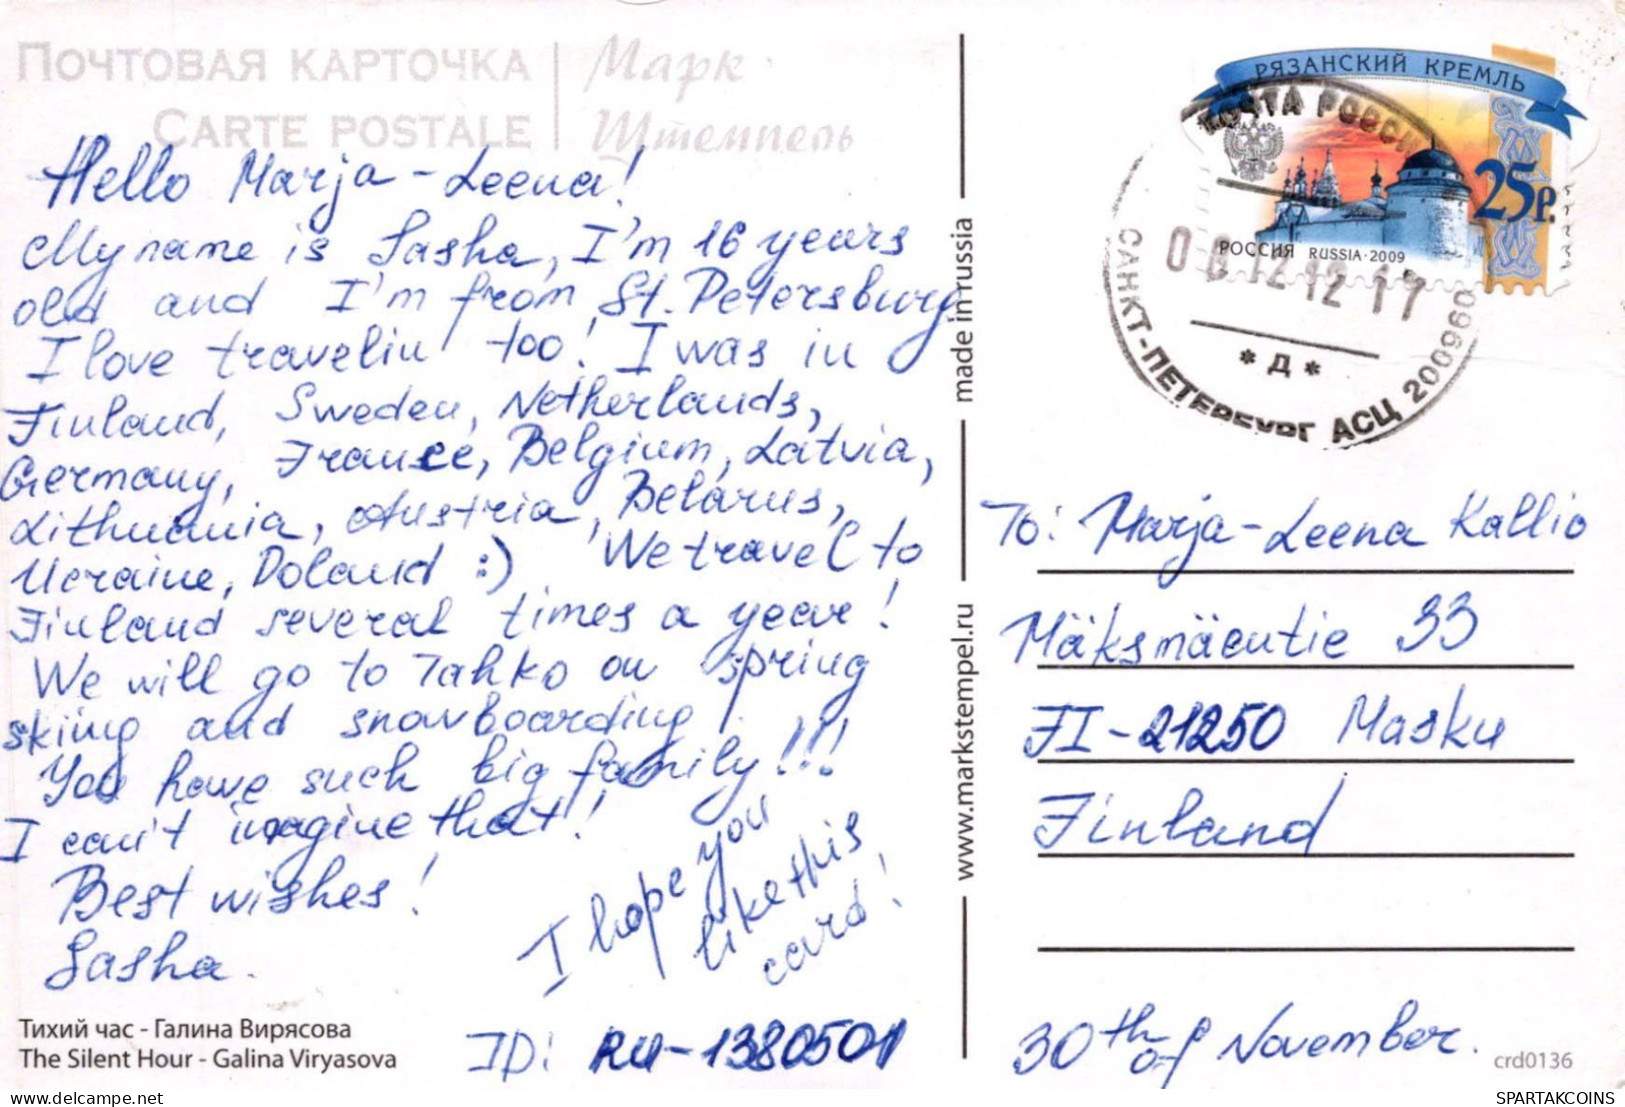 ПОЧТОВАЯ КАРТОЧКА
CARTE POSTALE
Марк
Штемпель
Hello Marja-Leena!
My name is Sasha, I'm 16 years
old and I'm from St. Petersburg.
I love travelin too! I was in
Finland, Sweden, Netherlands,
Germany, France, Belgium, Latvia,
Lithuania, Austria, Belarus,
Ucraine, Poland :) We travel to
Finland several times a year!
We will go to Tahko on spring
skiing and snowboarding.
You have such big family!!!
I can't imagine that!
Best wishes!
Sasha.
I hope you
like this
card!
Тихий час - Галина Вирясова
The Silent Hour - Galina Viryasova
ID: RU-1380501
made in russia
www.markstempel.ru
РЯЗАНСКИЙ КРЕМЛЬ
25р.
РОССИЯ RUSSIA·2009
ПОЧТА РОССИИ
12 12 17
* Д *
САНКТ-ПЕТЕРБУРГ АСЦ 200960
To: Marja-Leena Kallio
Mäksmäentie 33
FI-21250 Masku
Finland
30th of November.
crd0136
www.delcampe.net
SPARTAKCOINS